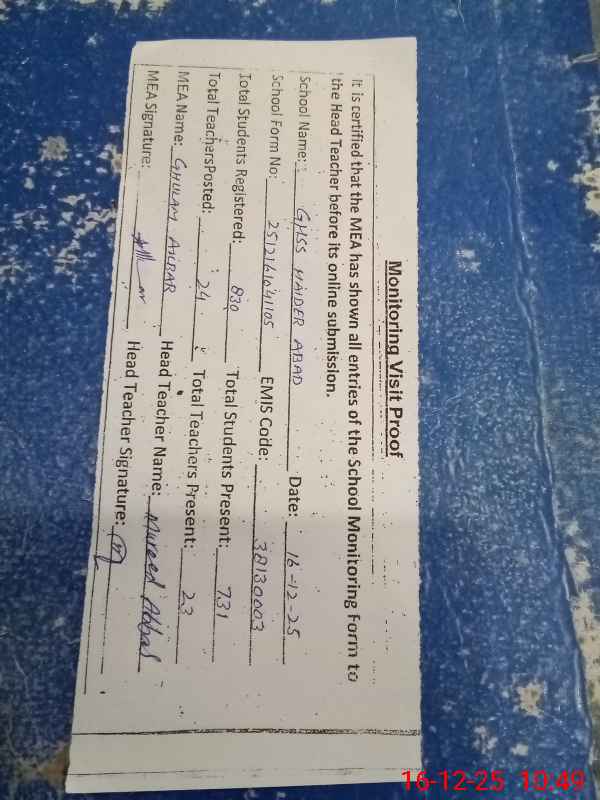 Monitoring Visit Proof
It is certified that the MEA has shown all entries of the School Monitoring Form to
the Head Teacher before its online submission.
School Name: GHSS HAIDER ABAD Date: 16-12-25
School Form No: 2512161041105 EMIS Code: 38130003
Total Students Registered: 830 Total Students Present: 731
Total TeachersPosted: 24 Total Teachers Present: 23
MEA Name: GHULAM AKBAR Head Teacher Name: Mureed Abbas
MEA Signature: Head Teacher Signature:
16-12-25 10:49